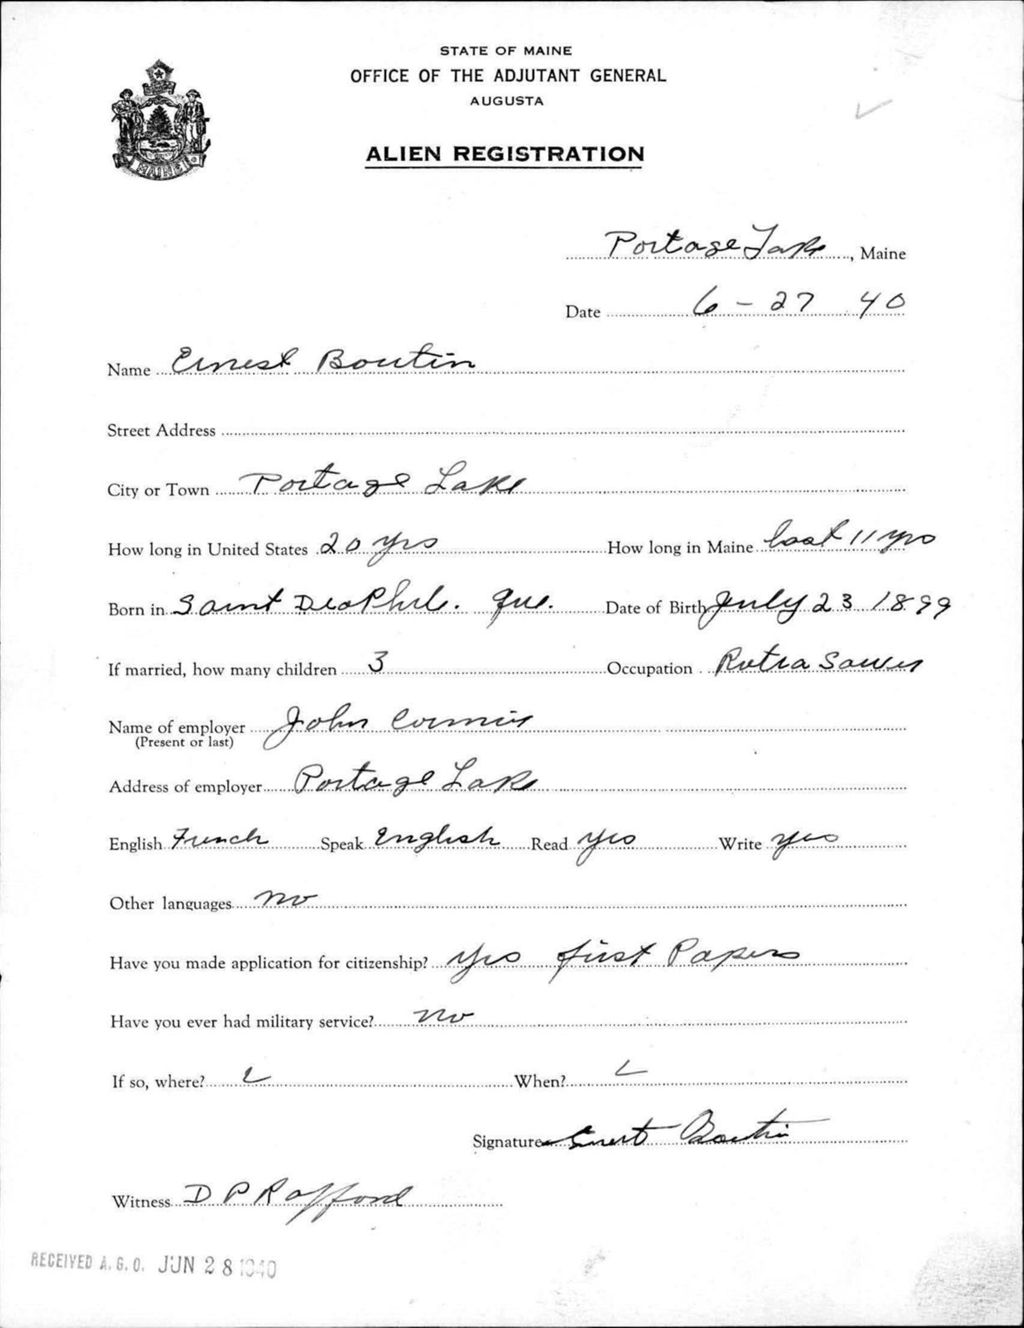 STATE OF MAINE
OFFICE OF THE ADJUTANT GENERAL
AUGUSTA
ALIEN REGISTRATION
MAINE
Portage Lake, Maine
Date 6 - 27 40
Name Ernest Boutin
Street Address
City or Town Portage Lake
How long in United States 20 yrs How long in Maine last 11 yrs
Born in Saint Que. Date of Birth July 23 1899
If married, how many children 3 Occupation
Name of employer John
(Present or last)
Address of employer Portage Lake
English French Speak English Read yes Write yes
Other languages no
Have you made application for citizenship? yes first Papers
Have you ever had military service? no
If so, where? When?
Signature Ernest Boutin
Witness D P Rafford
RECEIVED A.G.O. JUN 28 1940